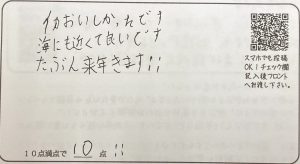 イカおいしかったです
海にも近くて良いです
たぶん来年きます!!
10点満点で 10 点 !!
スマホでも投稿
OK!チェック欄
記入後フロント
へお渡し下さい。